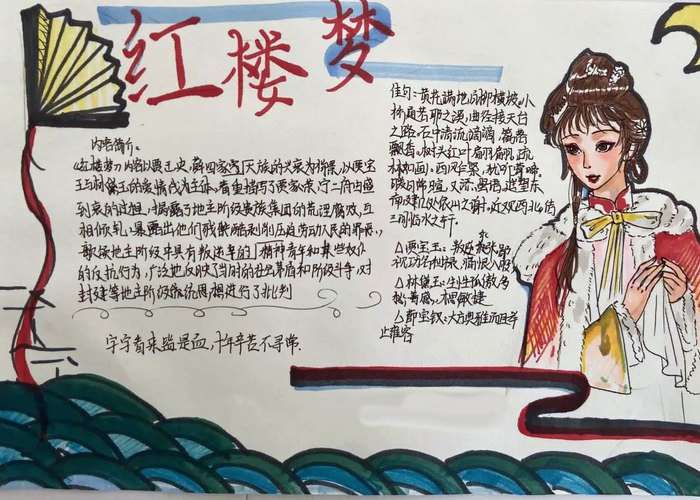 红楼梦
内容简介:
《红楼梦》内容以贾、王、史、薛四家大族的兴衰为背景,以贾宝
玉与林黛玉的爱情代为主体,着重描写了贾家荣、宁二府由盛
到衰的过程,揭露了地主阶级贵族集团的荒淫腐败,互
相倾轧,暴露出他们残酷剥削压迫劳动人民的罪恶,
歌颂地主阶级中具有叛逆的精神青年和某些奴仆
的反抗行为,广泛地反映了当时的社会矛盾和阶级斗争,对
封建等地主阶级统思想进行了批判
字字看来皆是血,十年辛苦不寻常.
佳句:黄花满地,白柳横坡,小
桥通若耶之溪,曲径接天台
之路,石中清流滴滴,篱落
飘香,树头红叶翩翩,疏
林如画。西风乍紧,犹听莺啼,
暖日常暄,又添蛩语,遥望东
南,建几处依山之榭,近观西北,结
三间临水之轩。
△贾宝玉:
△林黛玉:生性孤傲,多
愁善感,才思敏捷
△薛宝钗:大方典雅而且举
止雍容